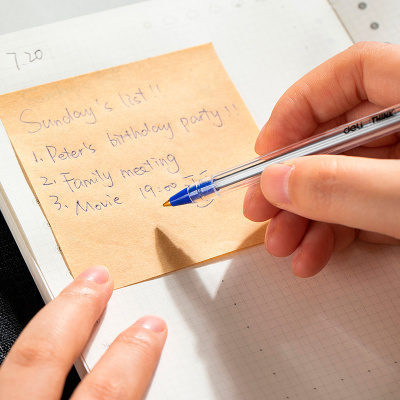 7.20
Sunday's list!!
1. Peter's birthday party!!
2. Family meeting
3. Movie 19:00
deli Think